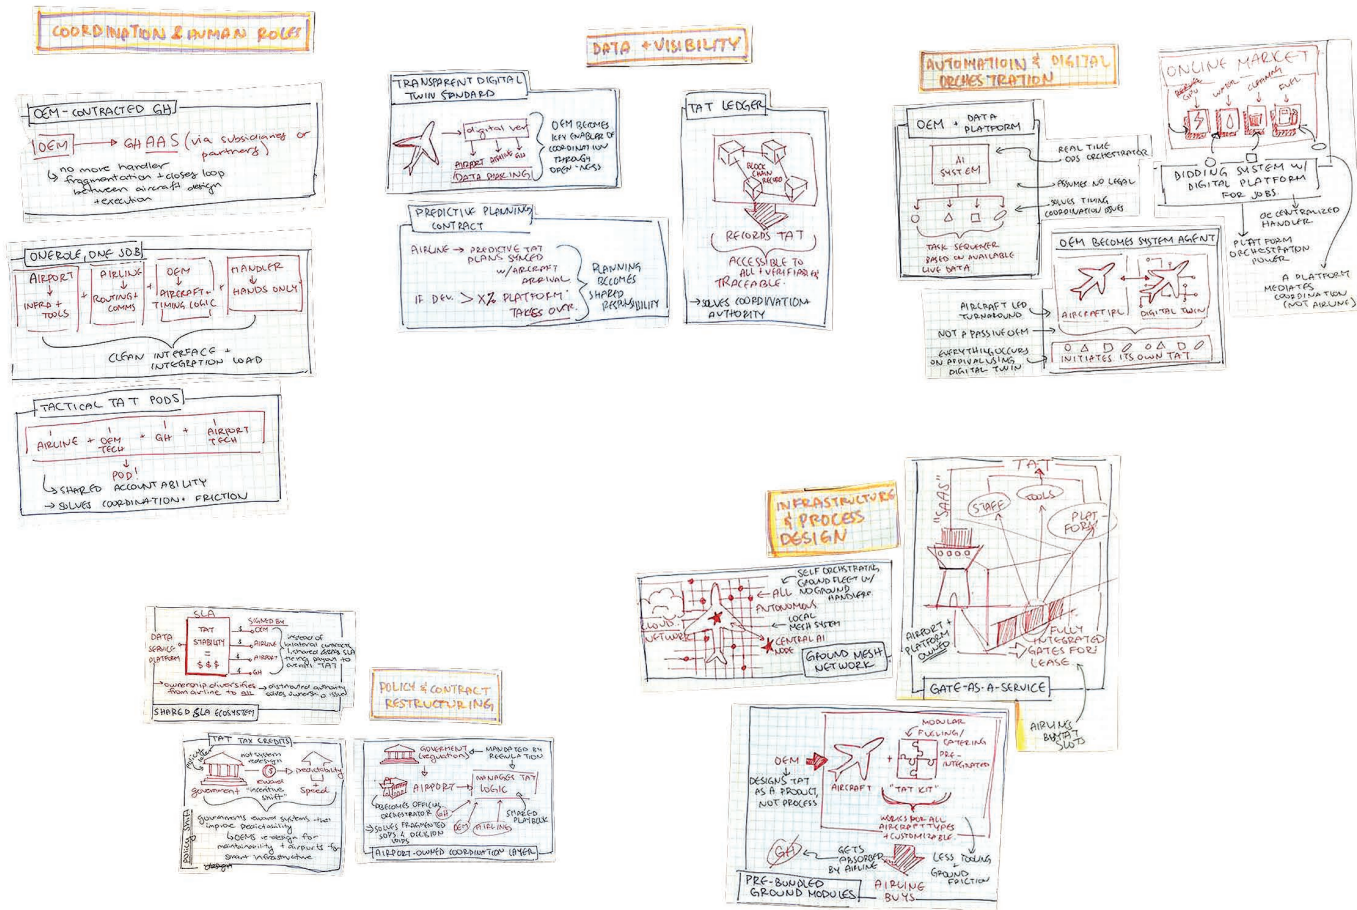 COORDINATION & HUMAN ROLES
OEM-CONTRACTED GH
OEM → GHAAS (via subsidiaries or
partners)
↳ no more handler
fragmentation + closes loop
between aircraft design
+ execution
ONE ROLE, ONE JOB
AIRPORT + AIRLINE + OEM + HANDLER
INFRA + TOOLS
ROUTING + COMMS
AIRCRAFT + TIMING LOGIC
HANDS ONLY
CLEAN INTERFACE +
INTEGRATION LOAD
TACTICAL TAT PODS
AIRLINE + OEM TECH + GH + AIRPORT TECH
POD!
↳ SHARED ACCOUNTABILITY
→ SOLVES COORDINATION FRICTION
DATA + VISIBILITY
TRANSPARENT DIGITAL
TWIN STANDARD
digital ver
AIRPORT AIRLINE GH
DATA SHARING
OEM BECOMES
KEY ENABLER OF
COORDINATION
THROUGH
OPEN-NESS
PREDICTIVE PLANNING
CONTRACT
AIRLINE → PREDICTIVE TAT
PLANS SYNCED
W/AIRCRAFT
ARRIVAL
IF DEV. > X% PLATFORM
TAKES OVER.
PLANNING
BECOMES
SHARED
RESPONSIBILITY
TAT LEDGER
BLOCK
CHAIN
RECORD
RECORDS TAT
ACCESSIBLE TO
ALL + VERIFIABLE +
TRACEABLE.
→ SOLVES COORDINATION
AUTHORITY
AUTOMATIOIN & DIGITAL
ORCHESTRATION
OEM + DATA
PLATFORM
AI
SYSTEM
TASK SEQUENCER
BASED ON AVAILABLE
LIVE DATA
REAL TIME
OPS ORCHESTRATOR
ASSUMES NO LEGAL
SOLVES TIMING
COORDINATION ISSUES
ONLINE MARKET
GPU
WATER
CLEANING
FUEL
BIDDING SYSTEM W/
DIGITAL PLATFORM
FOR JOBS.
DECENTRALIZED
HANDLER
PLATFORM
ORCHESTRATION
POWER
A PLATFORM
MEDIATES
COORDINATION
(NOT AIRLINE)
OEM BECOMES SYSTEM AGENT
AIRCRAFT IRL
DIGITAL TWIN
INITIATES ITS OWN TAT.
AIRCRAFT LED
TURNAROUND
NOT A PASSIVE OEM
EVERYTHING OCCURS
ON ARRIVAL USING
DIGITAL TWIN
INFRASTRUCTURE
& PROCESS
DESIGN
CLOUD
NETWORK
SELF ORCHSTRATING
GROUND FLEET W/
NO GROUND
HANDLERS
ALL
AUTONOMOUS
LOCAL
MESH SYSTEM
CENTRAL AI
NODE
GROUND MESH
NETWORK
"SAAS"
TAT
STAFF
TOOLS
PLATFORM
AIRPORT +
PLATFORM
OWNED
FULLY
INTEGRATED
GATES FOR
LEASE
GATE-AS-A-SERVICE
AIRLINES
BUY TAT
SLOTS
OEM
DESIGNS TAT
AS A PRODUCT,
NOT PROCESS
AIRCRAFT
MODULAR
FUELING/
CATERING
PRE-
INTEGRATED
"TAT KIT"
WORKS FOR ALL
AIRCRAFT TYPES
+ CUSTOMIZABLE.
GH
GETS
ABSORBED
BY AIRLINE
AIRLINE
BUYS
LESS TOOLING
+
GROUND
FRICTION
PRE-BUNDLED
GROUND MODULES
SLA
DATA
SERVICE
PLATFORM
TAT
STABILITY
=
$$$
SIGNED BY
$ OEM
$ AIRLINE
$ AIRPORT
$ GH
instead of
bilateral contracts,
1 shared SLA
tying payout to
overall TAT
→ ownership diversifies
from airline to all
→ distributed authority
solves ownership issue
SHARED SLA ECOSYSTEM
POLICY & CONTRACT
RESTRUCTURING
TAT TAX CREDITS
not system
redesign
reward
predictability
government
"incentive
shift"
speed
governments reward systems that
improve predictability
↳ OEMS redesign for
maintainability + airports for
smart infrastructure
policy shift
GOVERNMENT
(regulations)
MANDATED BY
REGULATION
AIRPORT
MANAGES TAT
LOGIC
BECOMES OFFICIAL
ORCHESTRATOR
GH
OEM
AIRLINES
SHARED
PLAYBOOK
→ SOLVES FRAGMENTED
SOPS & DECISION
AIRPORT-OWNED COORDINATION LAYER